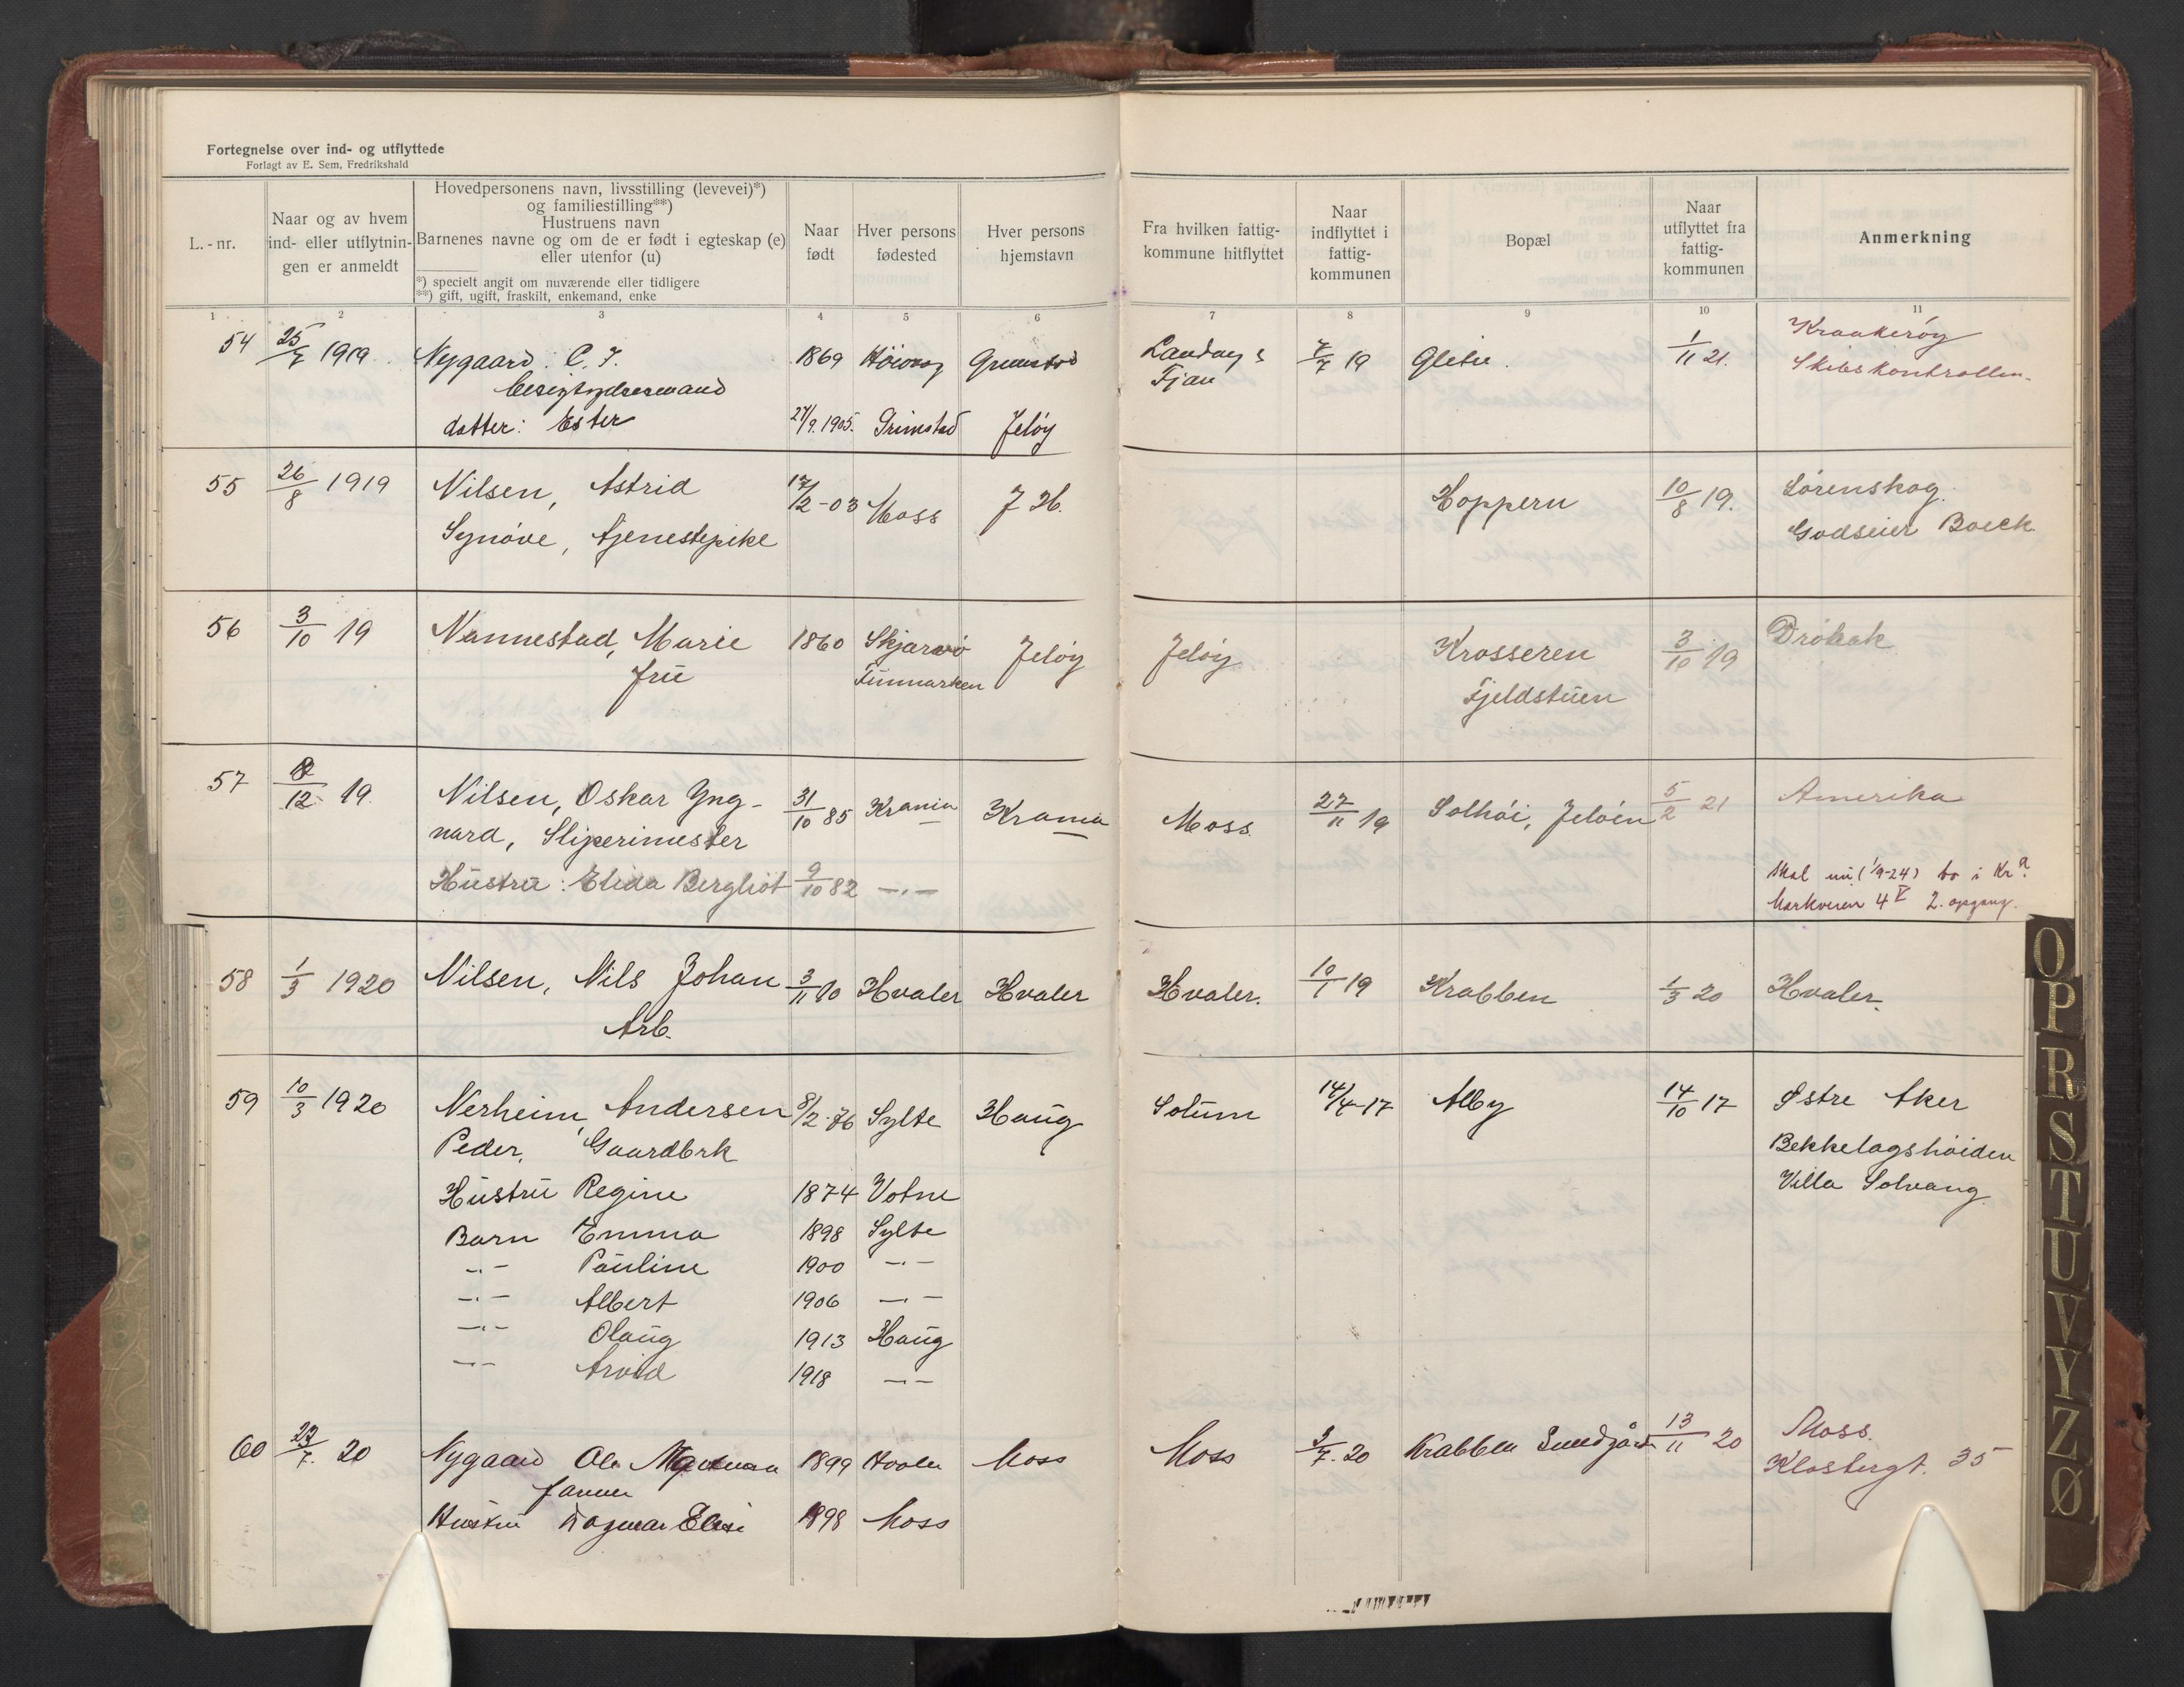 Fortegnelse over ind- og utflyttede
Forlagt av E. Sem, Fredrikshald
L.-nr.
Naar og av hvem
ind- eller utflytnin-
gen er anmeldt
Hovedpersonens navn, livsstilling (levevei)*)
og familiestilling**)
Hustruens navn
Barnenes navne og om de er født i egteskap (e)
eller utenfor (u)
*) specielt angit om nuværende eller tidligere
**) gift, ugift, fraskilt, enkemand, enke
Naar
født
Hver persons
fødested
Hver persons
hjemstavn
Fra hvilken fattig-
kommune hitflyttet
Naar
indflyttet i
fattig-
kommunen
Bopæl
Naar
utflyttet fra
fattig-
kommunen
Anmerkning
1 2 3 4 5 6 7 8 9 10 11
54 25/7 1919 Nygaard: C. J. 1869 Høivaag Grimstad 7/7 19 1/11 21. Kraakerøy
Skibskontrollen
datter: Ester 27/9.1905. Grimstad Jeløy
55 26/8 1919 Nilsen, Astrid 17/2-03 Moss J H. Hoppern 10/8 19. Lørenskog.
Synøve, tjenestepike Godseier Boeck
56 3/10 19 Nannestad, Marie 1860 Skjærvø Jeløy Jeløy Krosseren 3/10 19 Drøbak
Frü Finmarken Fjeldstüen
57 12 19. Nilsen, Oskar Yng- 31/10 85 Krania Krania Moss. 27/11 19 Solhøi, Jeløen 5/2 21 Amerika
vard, Sliperimester
Hüstrü: Elida Bergliot 9/10 82 -"- Skal nu (1/9-24) bo i Kr.a
Markveien 4 V 2. opgang.
58 1/3 1920 Nilsen, Nils Johan 3/11 90 Hvaler Hvaler Hvaler. 10/1 19 Krabben 1/3 20 Hvaler.
Arb.
59 10/3 1920 Nerheim, Andersen 8/2-76 Sylte Haüg Solüm 14/4-17 Alby 14/10 17 Østre Aker
Peder, Gaardbrk Bekkelagshøiden
Hüstrü Regine 1874 Votne Villa Solvang.
Barn Emma 1898 Sylte
-"- Paüline 1900 -"-
-"- Albert 1906 -"-
-"- Olaüg 1913 Haüg
-"- Arvid 1918 -"-
60 23/7. 20 Nygaard Ole 1899 Moss Moss 3/7.20 Krabben 13/11 20 Moss.
Klostergt. 35
Hustru Dagmar Elise 1898 Moss
O
P
R
S
T
U
V
Y
Z
Ø